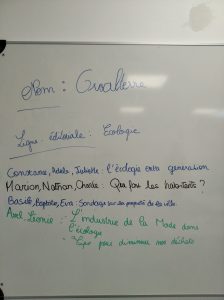 Nom : Gwalterre
Ligne éditoriale : Ecologie
Constance, Adèle, Juliette : l'écologie entre generation
Marion, Nathan, Charlie : Que font les habitants ?
Basile, Baptiste, Eva : Sondage sur la propreté de la ville.
Axel, Léonie : L'industrie de la Mode dans
l'écologie
Tips pour diminuer nos déchets